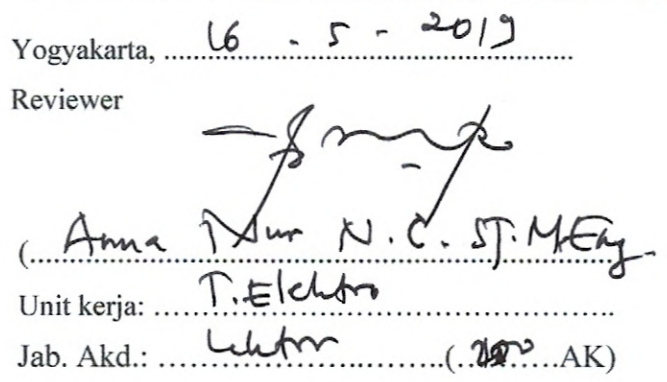 Yogyakarta, 16 - 5 - 2019
Reviewer
(Anna Nur N.C. ST. M.Eng.
Unit kerja: T. Elektro
Jab. Akd.: Lektor (200 AK)